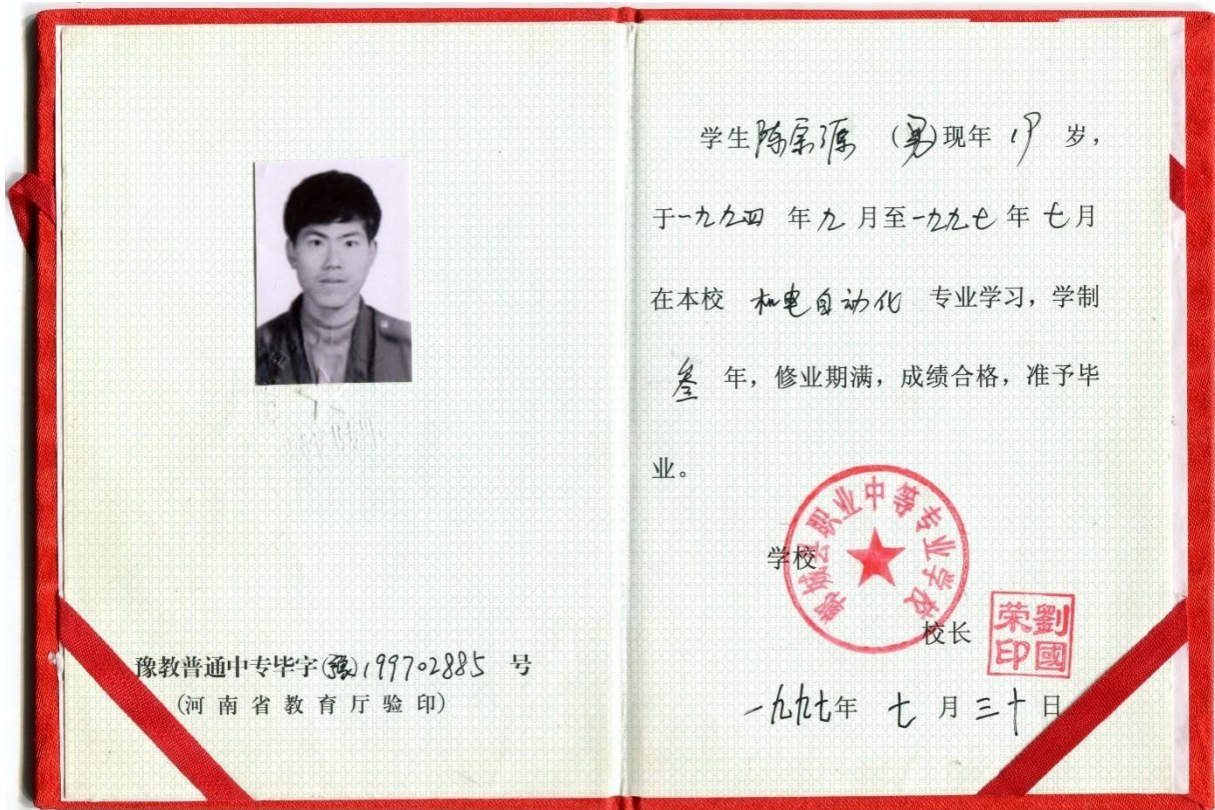 豫教普通中专毕字(豫)199702885 号
(河南省教育厅验印)
学生陈宗源 (男)现年 19 岁,
于一九九四 年九 月至一九九七 年 七月
在本校 机电自动化 专业学习,学制
叁 年,修业期满,成绩合格,准予毕
业。
郸城县职业中等专业学校
学校
校长
劉國
荣印
一九九七年 七 月 三十 日